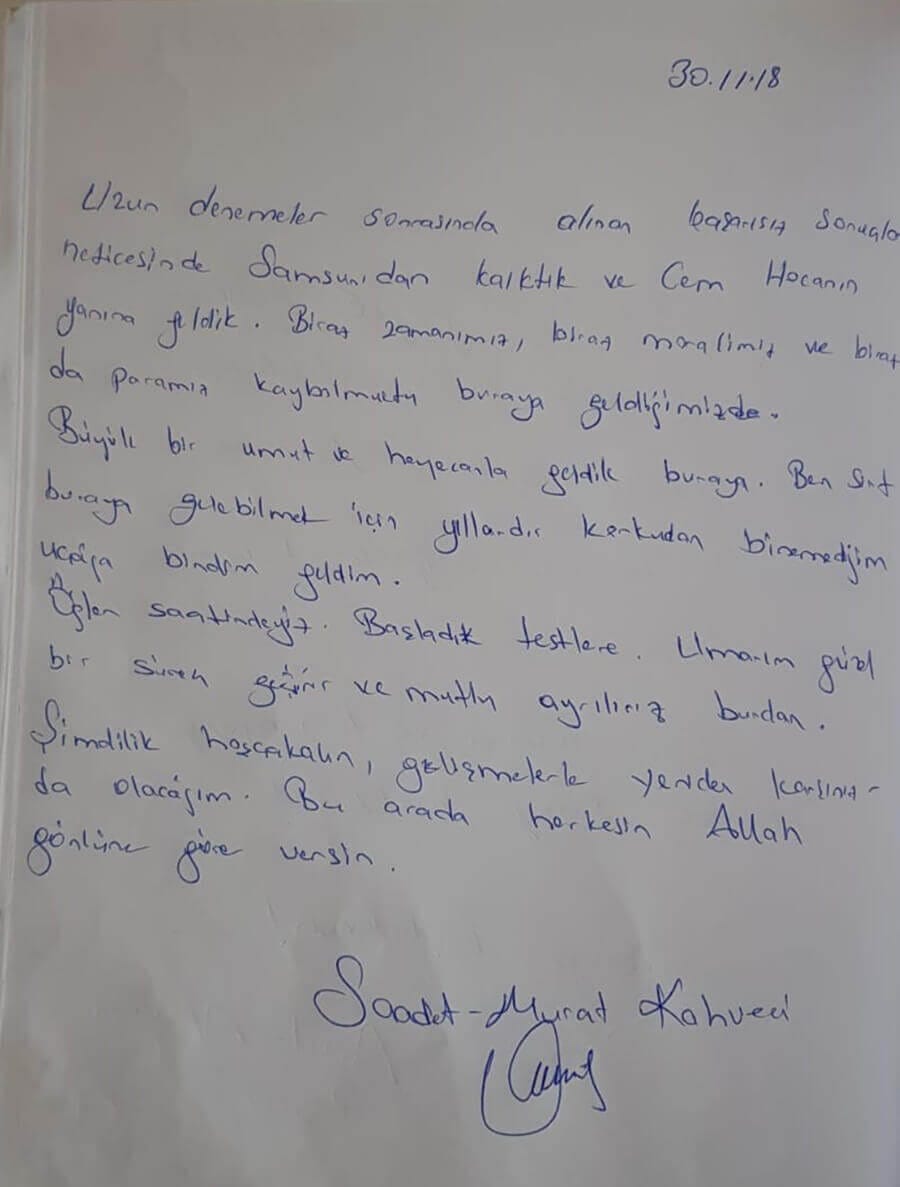 30.11.18
Uzun denemeler sonrasında alınan başarısız sonuçla
neticesinde Samsun'dan kalktık ve Cem Hocanın
yanına geldik. Biraz zamanımız, biraz moralimiz ve biraz
da paramız kaybılmuctu buraya geldiğimizde.
Büyük bir umut ve heyecanla geldik buraya. Ben Sırf
buraya gelebilmek için yıllardır korkudan binemediğim
uçağa bindim geldim.
Öğlen saatindeyiz. Başladık testlere. Umarım güzel
bir süreç geçirir ve mutlu ayrılırız burdan.
Şimdilik hoşçakalın, gelişmelerle yeniden karşınız-
da olacağım. Bu arada herkesin Allah
gönlüne göre versin.
Saadet-Murat Kahveci